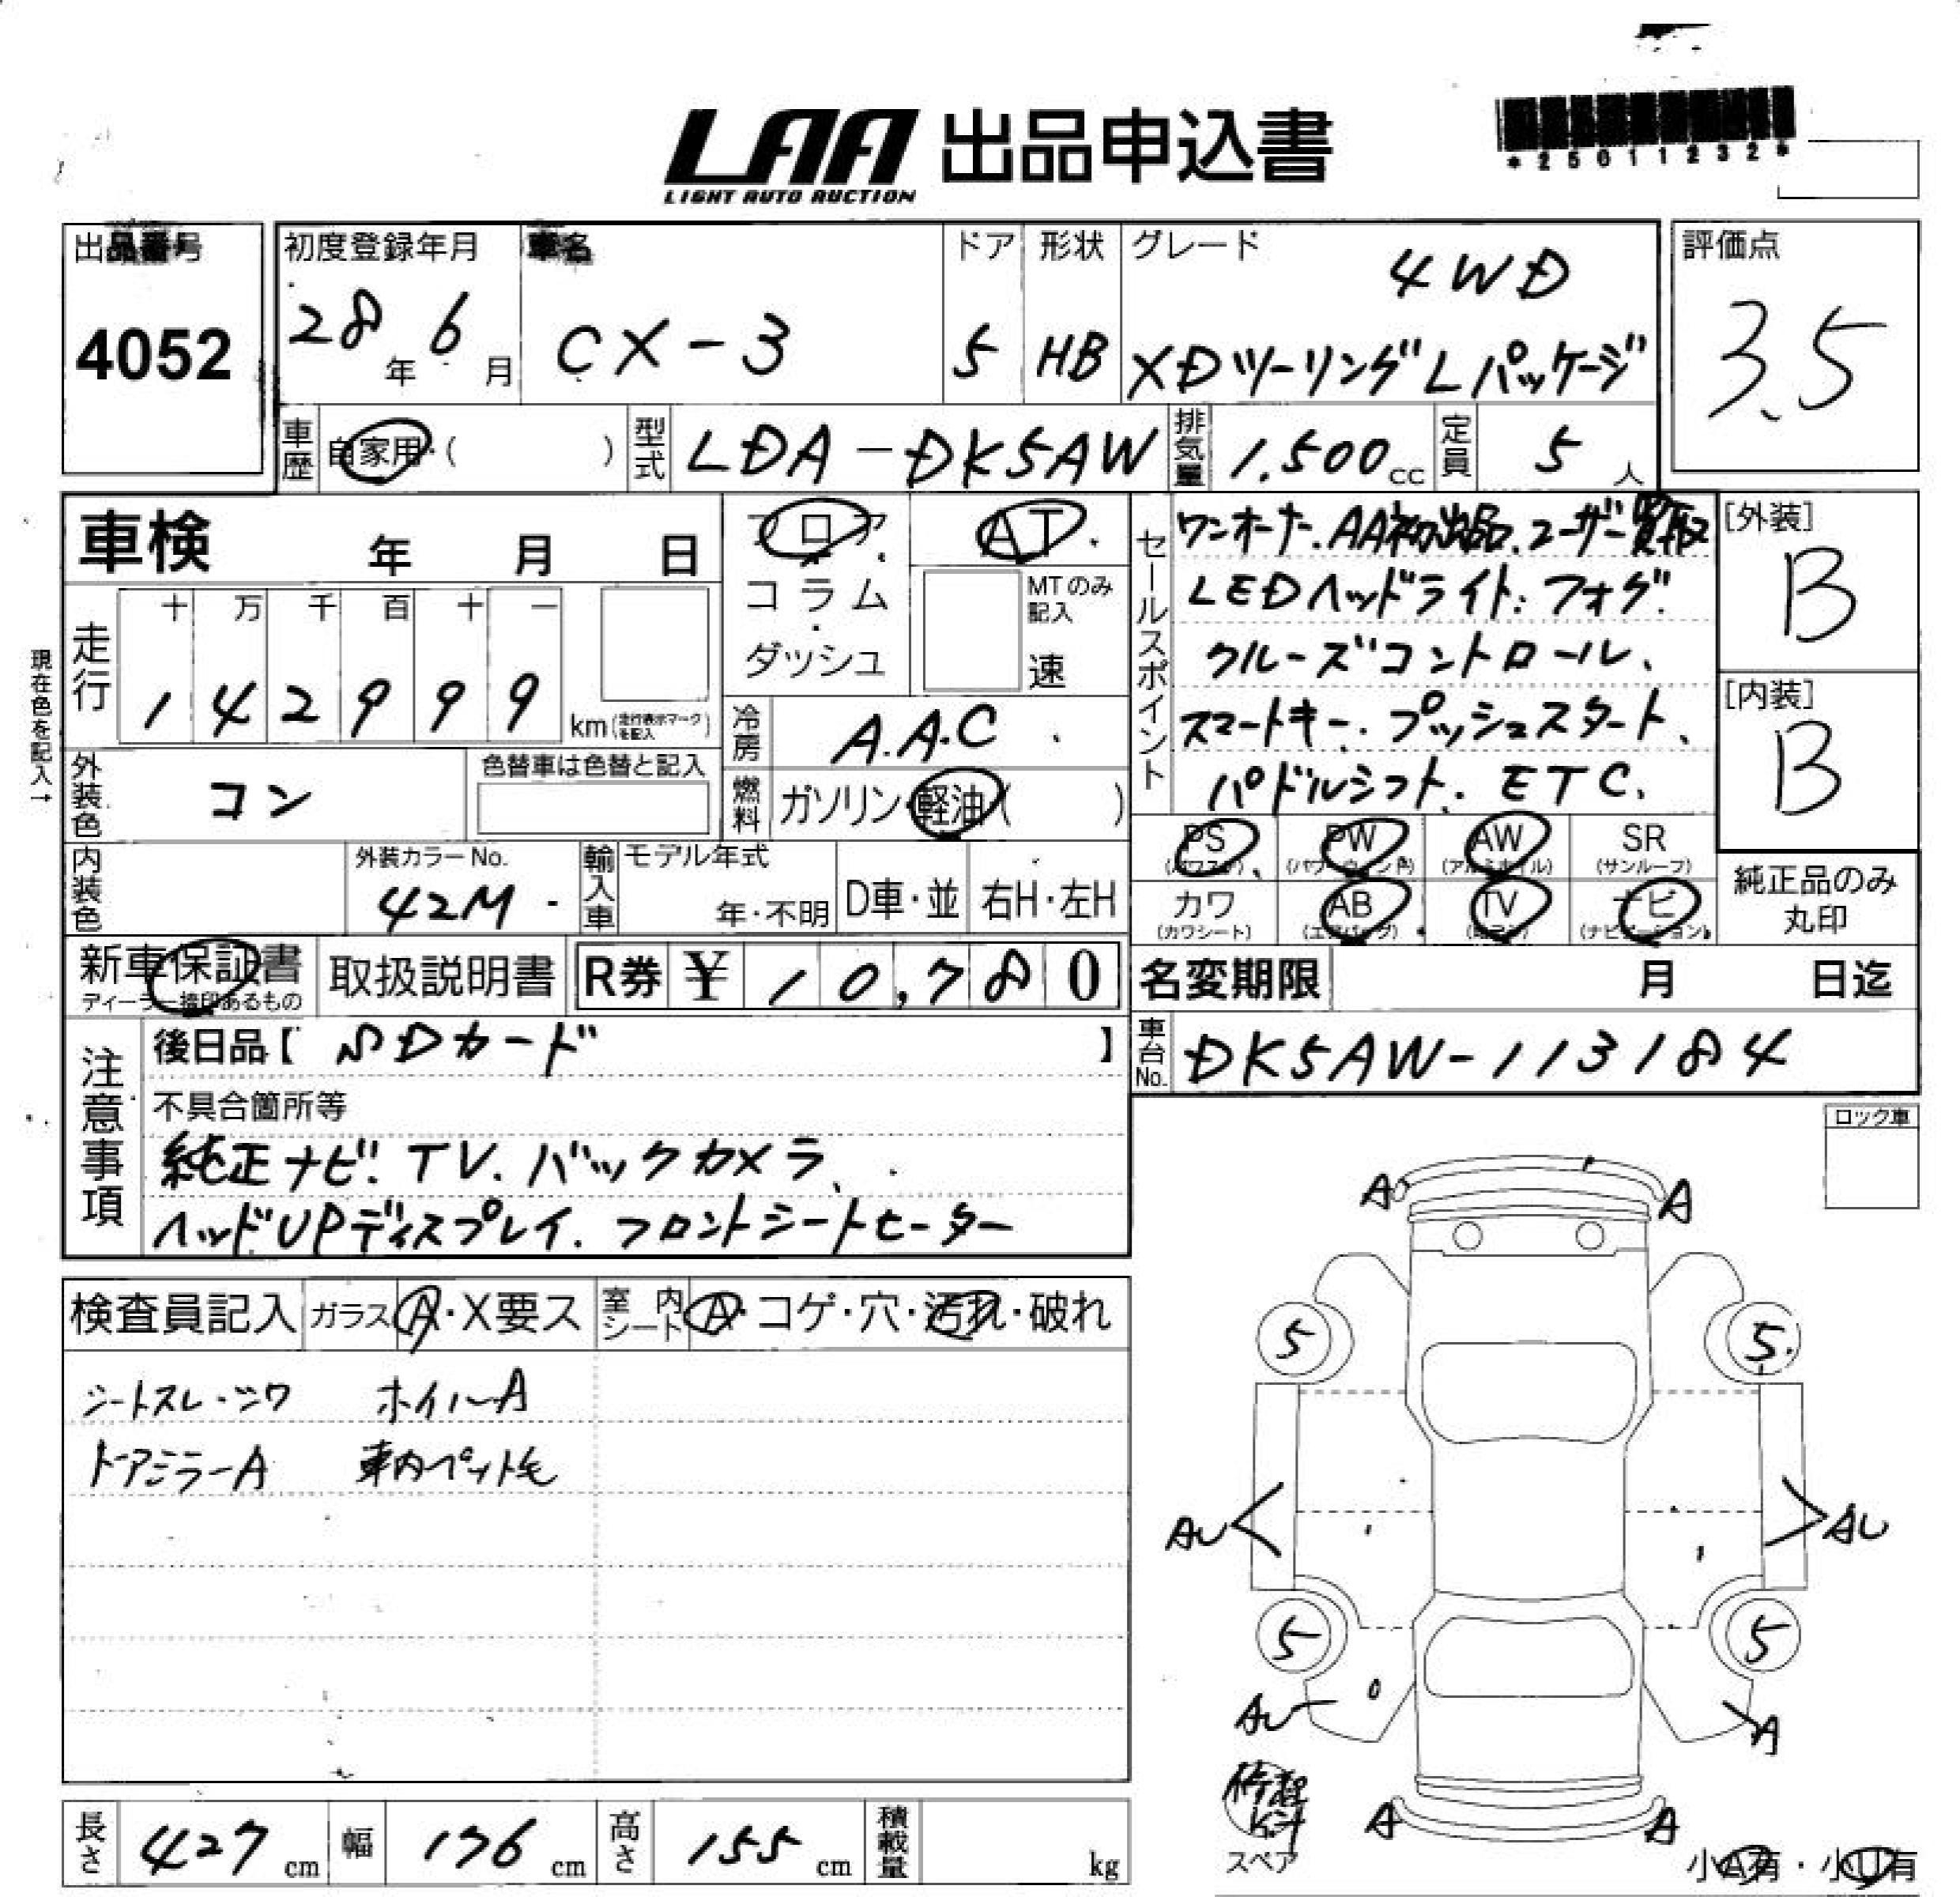 LAA 出品申込書
LIGHT AUTO AUCTION
*25011232*
出品番号
4052
初度登録年月
28年 6月
車名
CX-3
ドア
5
形状
HB
グレード
4WD
XDツーリングLパッケージ
評価点
3.5
車歴
自家用・( )
型式
LDA-DK5AW
排気量
1,500cc
定員
5人
車検 年 月 日
フロア
コラム
ダッシュ
AT
MTのみ記入
速
走行
十 万 千 百 十 一
1 4 2 9 9 9
km(走行表示マークを記入)
現在色を記入→
外装色
コン
色替車は色替と記入
冷房
A.A.C
燃料
ガソリン・軽油( )
内装色
外装カラーNo.
42M
輸入車
モデル年式
年・不明
D車・並
右H・左H
セールスポイント
ワンオーナー、AA初出品、ユーザー買取
LEDヘッドライト、フォグ
クルーズコントロール、
スマートキー、プッシュスタート、
パドルシフト、ETC、
PS PW AW SR
(パワステ) (パワーウィンドウ) (アルミホイル) (サンルーフ)
カワ AB TV ナビ
(カワシート) (エアバック) (ナビゲーション)
[外装]
B
[内装]
B
純正品のみ
丸印
新車保証書
ディーラー捺印あるもの
取扱説明書
R券 ¥ 10,780
名変期限 月 日迄
車台No.
DK5AW-113184
注意事項
後日品【 SDカード 】
不具合箇所等
純正ナビ、TV、バックカメラ、
ヘッドUPディスプレイ、フロントシートヒーター
ロック車
検査員記入
ガラス A・X要ス
室内シート A・コゲ・穴・汚れ・破れ
シートスレ・シワ ホイルA
ドアミラーA 車内ペット毛
A A
5 5
AU AU
5 5
AU A
A A
修理キット
スペア
小A有・小U有
長さ 427cm
幅 176cm
高さ 155cm
積載量 kg